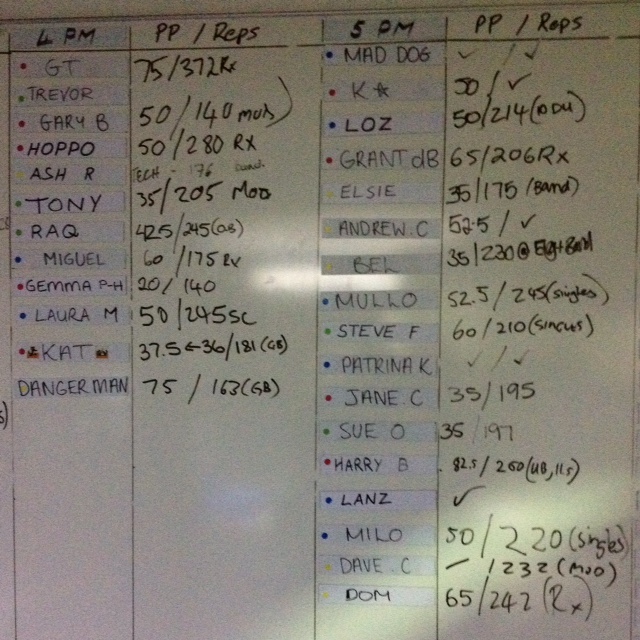 4 PM PP / Reps
GT 75/372Rx
TREVOR
GARY B 50/140 mod
HOPPO 50/280 RX
ASH R TECH - 176 band
TONY 35/205 Mod
RAQ 42.5/245(GB)
MIGUEL 60/175 Rx
GEMMA P-H 20/140
LAURA M 50/245sc
KAT 37.5←36/181(GB)
DANGERMAN 75 / 163(GB)
5 PM PP / Reps
MAD DOG ✓ / ✓
K☆ 50/✓
LOZ 50/214
GRANT dB 65/206Rx
ELSIE 35/175 (Band)
ANDREW.C 52.5 / ✓
BEL 35/230@
MULLO 52.5 / 245(singles)
STEVE F 60/210(SINGLES)
PATRINA K ✓ / ✓
JANE.C 35/195
SUE O 35/197
HARRY B
LANZ ✓
MILO 50/220(singles)
DAVE.C – /232(MOD)
DOM 65/242(Rx)